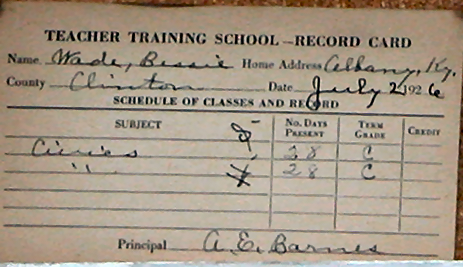 TEACHER TRAINING SCHOOL—RECORD CARD
Name Wade, Bessie Home Address Albany, Ky.
County Clinton Date July 2 1926
SCHEDULE OF CLASSES AND RECORD
SUBJECT No. DAYS PRESENT TERM GRADE CREDIT
Civics 28 C
" 28 C
Principal A. E. Barnes